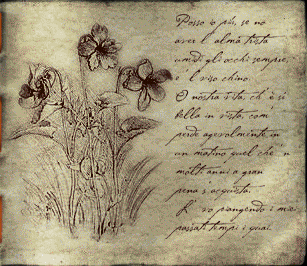 Posso 'o più, se no
aver l'alma trista
umidi gli occhi sempre,
e 'l viso chino.
O nostra vita, ch'è sì
bella in vista, com
perde agevolmente in
un matino quel che 'n
molti anni a gran
pena s'acquista
I' vo piangendo i miei
passati tempi i quai